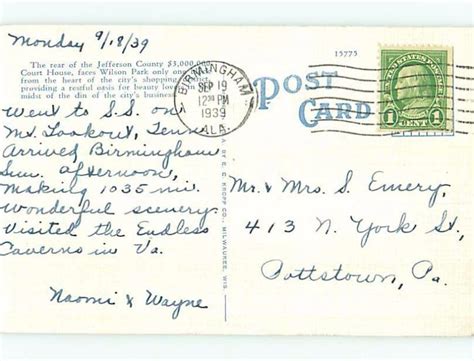 Monday 9/18/39
The rear of the Jefferson County $3,000,000
Court House, faces Wilson Park only one
from the heart of the city's shopping district
providing a restful oasis for beauty lovers in
midst of the din of the city's business
BIRMINGHAM
SEP 19
12 30 PM
1939
ALA.
15775
POST
CARD
UNITED STATES POSTAGE
1 CENT 1
Went to S.S. on
Mt. Lookout, Tenn.
Arrived Birmingham
Sun. afternoon,
Making 1035 mi.
Wonderful scenery
Visited the Endless
Caverns in Va.
Naomi & Wayne
E. C. KROPP CO., MILWAUKEE, WIS.
Mr. & Mrs S. Emery,
413 N. York St,
Pottstown, Pa.